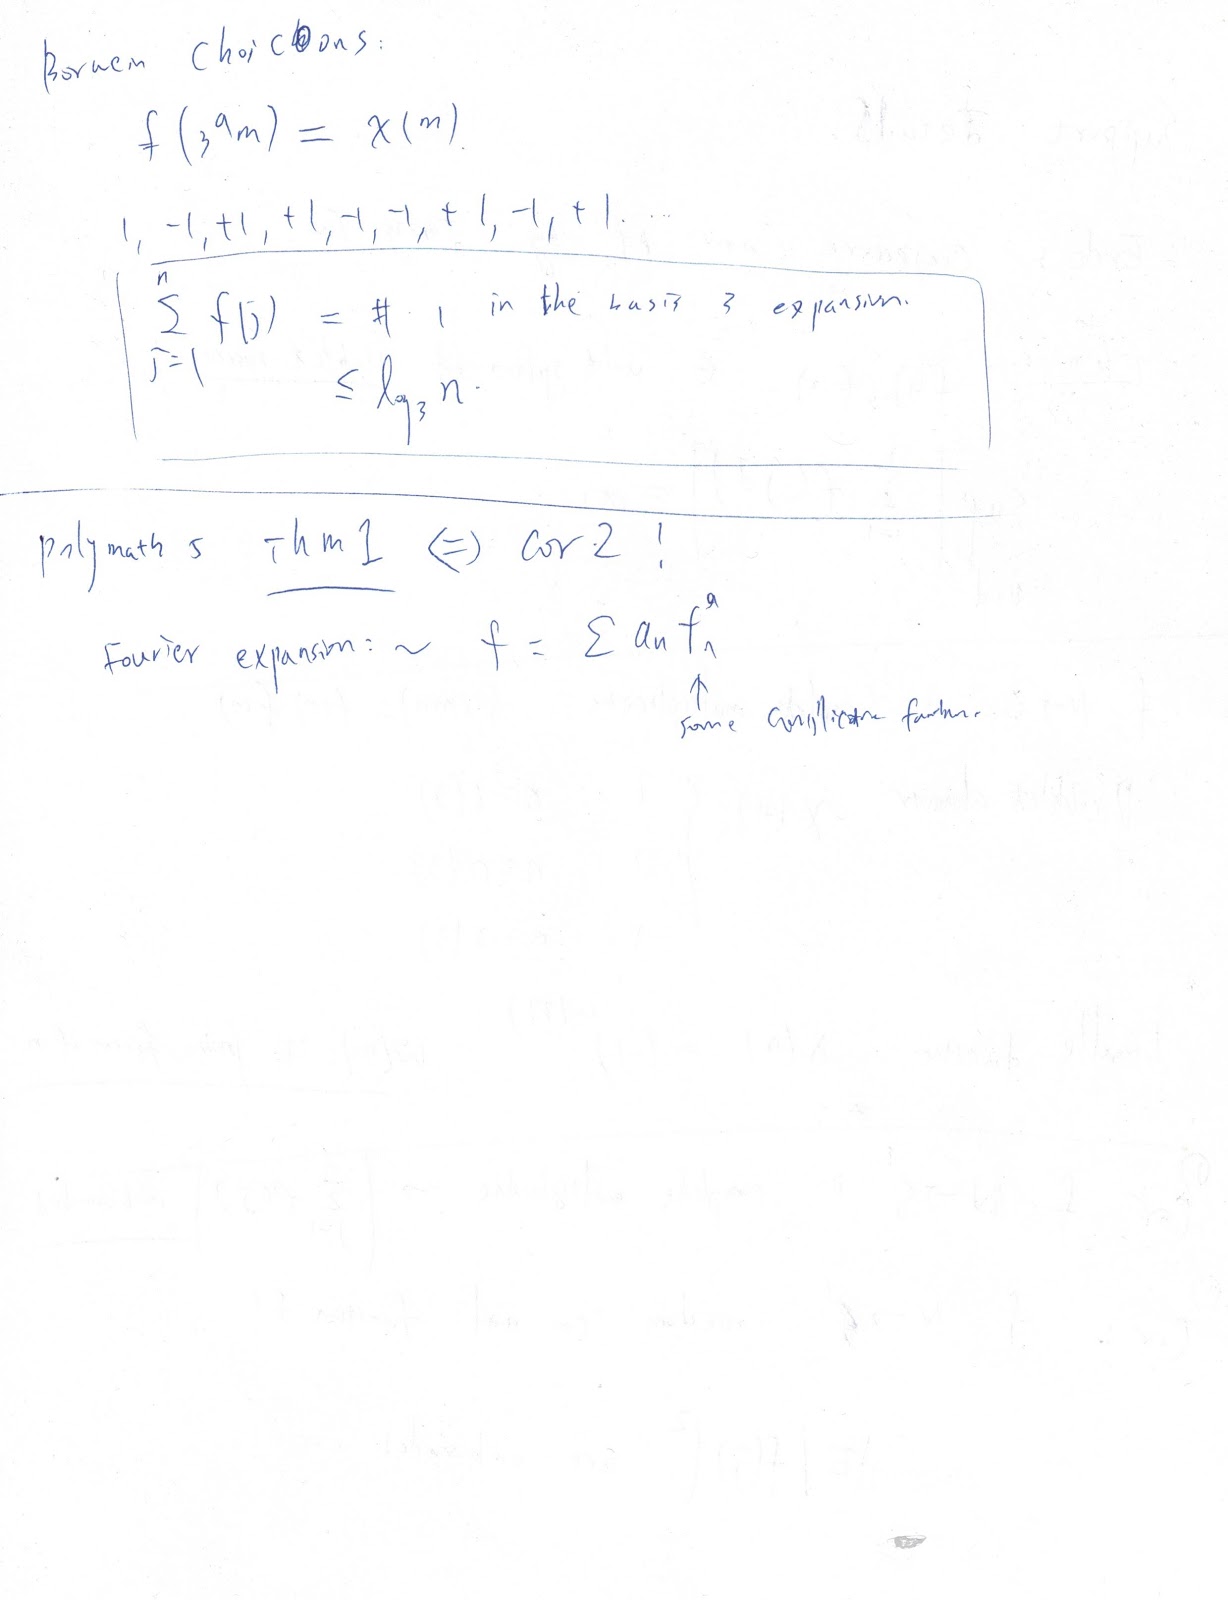 Borwein Choi Coons:
f(3^a m) = χ(m).
1, -1, +1, +1, -1, -1, +1, -1, +1. ...
n
Σ f(j) = # 1 in the basis 3 expansion.
j=1
≤ log_3 n.
polymath 5 Thm 1 (=) Cor 2 !
Fourier expansion: ~ f = Σ a_n f_n^a
↑
some